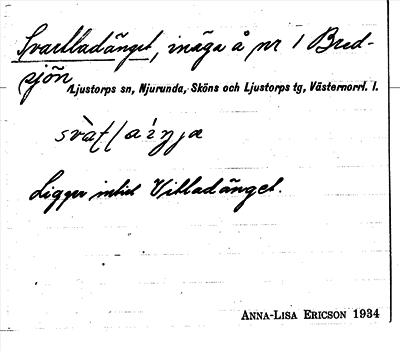 Svartladänget, inäga å nr 1 Bred-
sjön
Ljustorps sn, Njurunda, Sköns och Ljustorps tg, Västernorrl. l.
Ligger intid Vitladänget.
ANNA-LISA ERICSON 1934